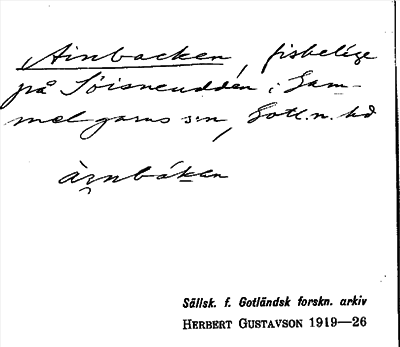 Ainbacken, fisbeläge
på Söisneudden i Gam-
melgarns s:n, Gotl. n. hd
àinbákan
Sällsk. f. Gotländsk forskn. arkiv
HERBERT GUSTAVSON 1919—26